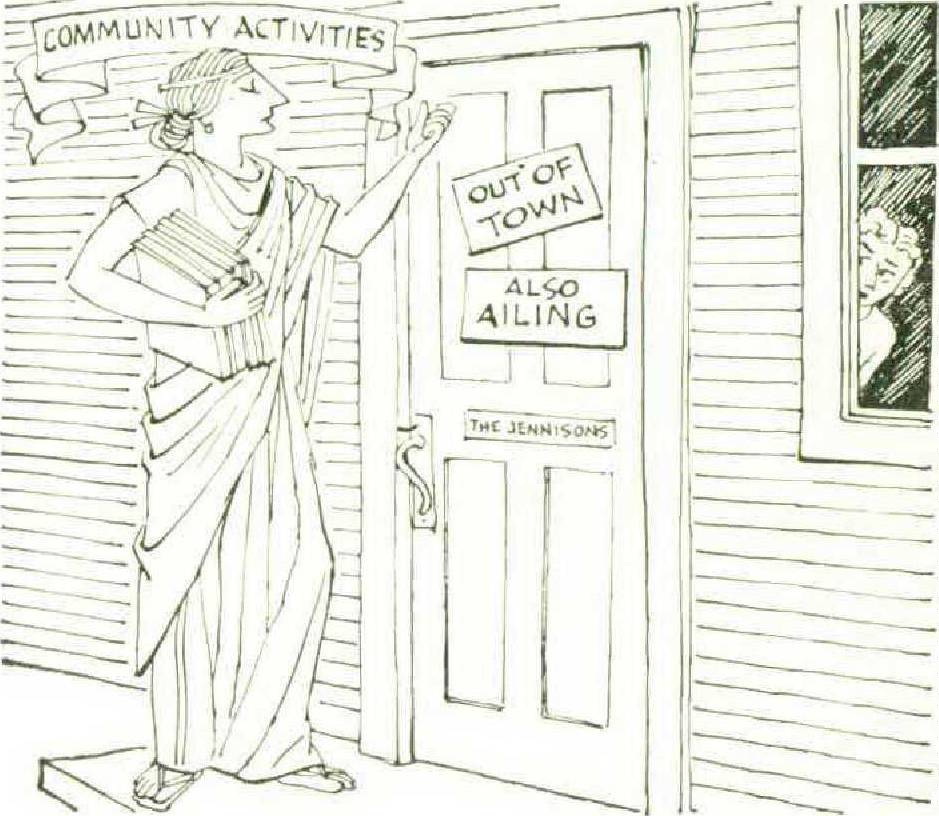 COMMUNITY ACTIVITIES
OUT OF
TOWN
ALSO
AILING
THE JENNISONS